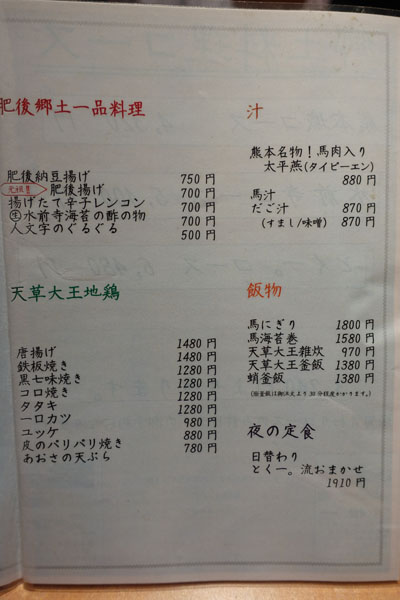 肥後郷土一品料理
肥後納豆揚げ 750円
肥後揚げ 700円
揚げたて辛子レンコン 700円
㊤水前寺海苔の酢の物 700円
人文字のぐるぐる 500円
天草大王地鶏
唐揚げ 1480円
鉄板焼き 1480円
黒七味焼き 1280円
コロ焼き 1280円
タタキ 1280円
一口カツ 1280円
ユッケ 980円
皮のパリパリ焼き 880円
あおさの天ぷら 780円
汁
熊本名物!馬肉入り
太平燕(タイピーエン)
880円
馬汁 870円
だご汁 870円
(すまし/味噌)
飯物
馬にぎり 1800円
馬海苔巻 1580円
天草大王雑炊 970円
天草大王釜飯 1380円
蛸釜飯 1380円
(※釜飯は御注文より30分程度かかります。)
夜の定食
日替わり
とくー。流おまかせ
1910円